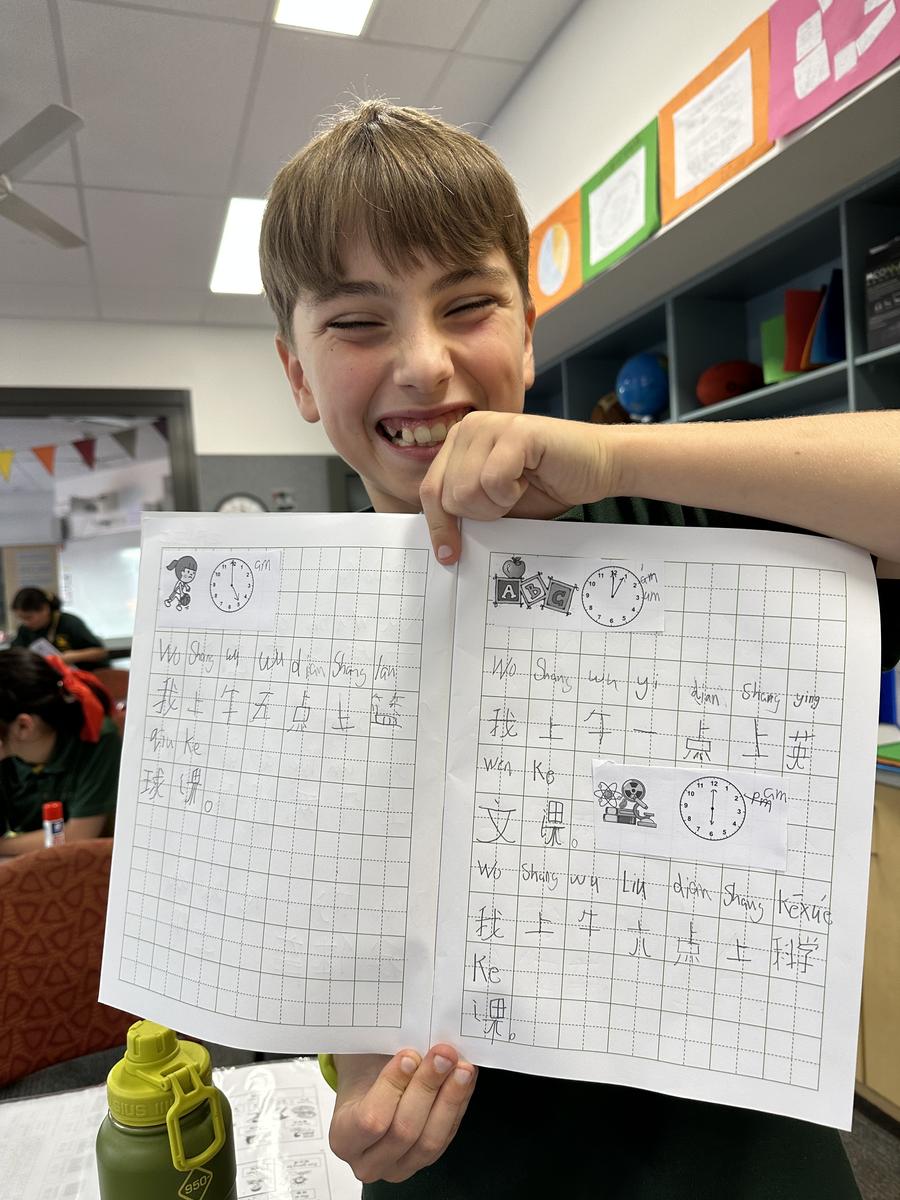 am
Wo Shang wu wu dian Shang lan
我上午五点上篮
qiu Ke
球课。
A B C
am
Wo Shang wu yi dian Shang ying
我上午一点上英
wen Ke
文课。
am
Wo Shang wu Liu dian Shang Kēxué
我上午六点上科学
Ke
课。
950